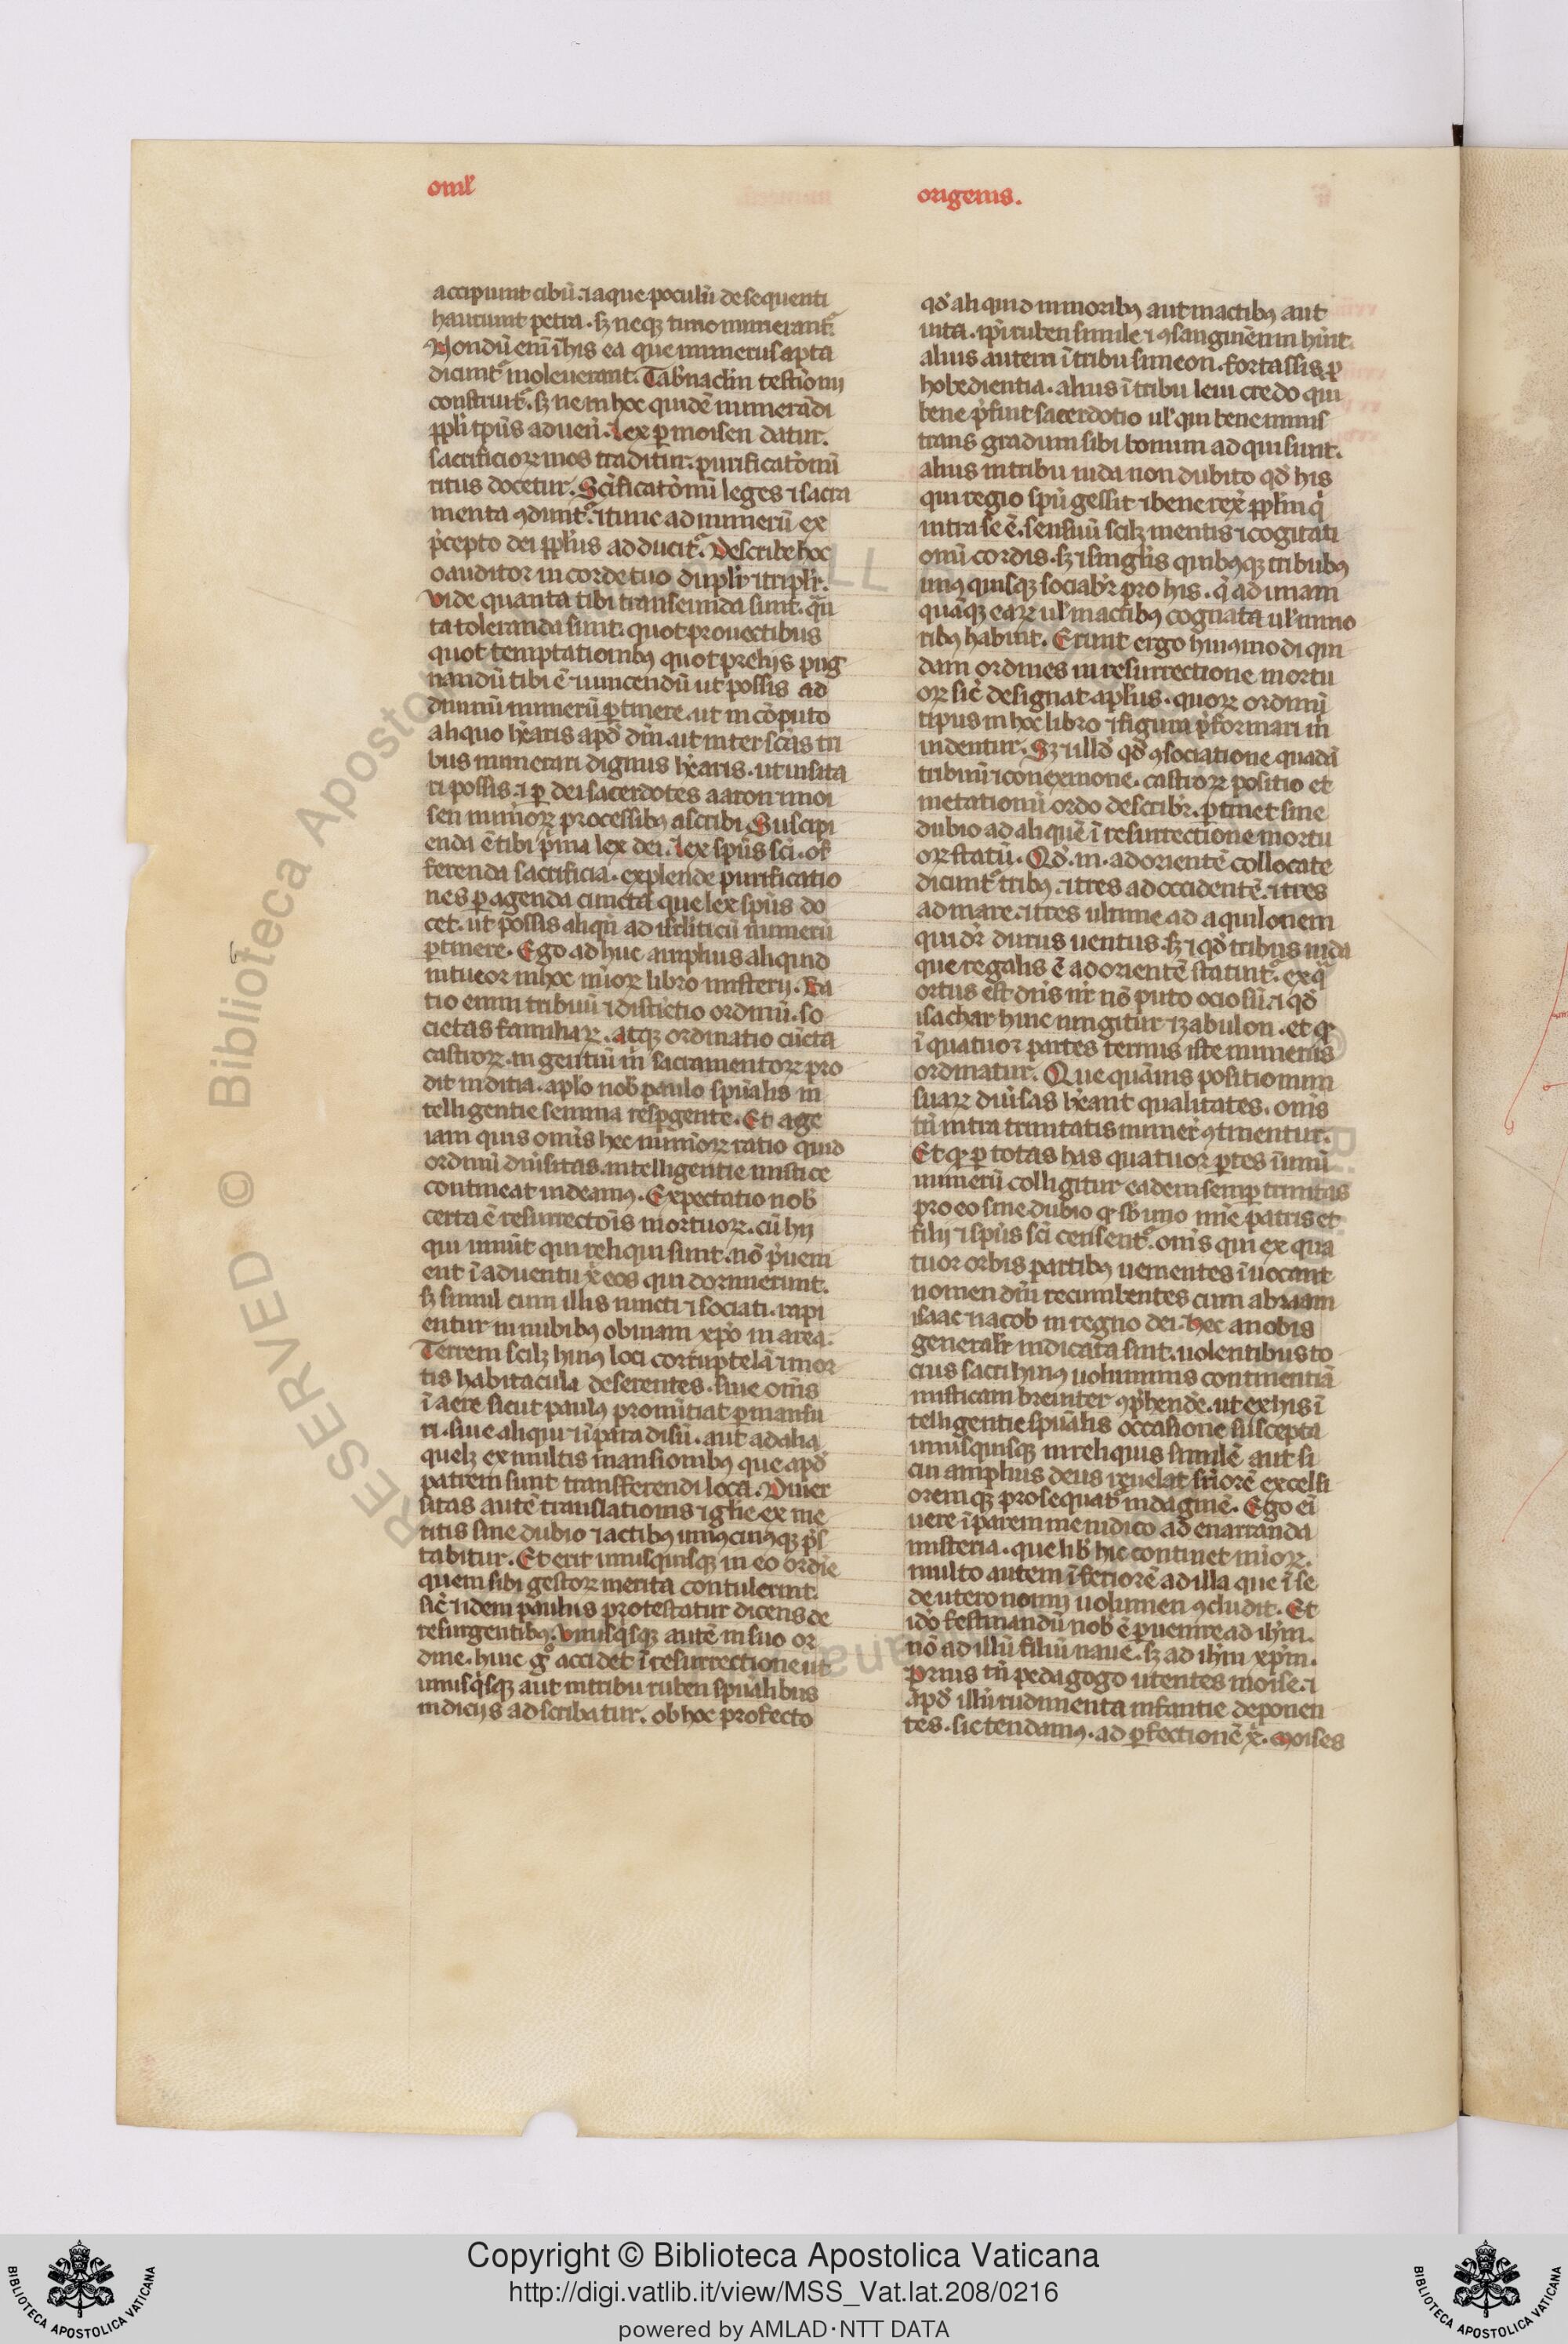 omł
origenis.
accipiunt cibū. ⁊ aque poculū de sequenti
hauriunt petra. sꝫ neqꝫ tunc numerant᷑.
Nondū eni᷑ ī his ea que numerus apta
dicunt᷑ inoleuerant. Tab̾naclm̄ testīonij
construit᷑. sꝫ ne in hoc quidē numerādi
ppłi tp̄us aduen̄. Lex ꝑ moisen datur.
sacrificioꝝ mos traditur. purificatōnū
ritus docetur. Sc̄ificatōnū leges ⁊ sacra
menta ꝯdunt᷑. ⁊ tunc ad numerū ex
p̄cepto dei ppłus adducit᷑. Describe hoc
o auditor in corde tuo duplr̄ ⁊ triplr̄.
Vide quanta tibi transeunda sunt. quā
ta toleranda sunt. quot prouectibus
quot temptationibꝰ quot prelijs pug
nandū tibi ē ⁊ uincendū ut possis ad
diuinū numerū ꝑtinere. ut in cōputo
aliquo h̄earis apđ dm̄. ut inter sc̄as tri
bus numerari dignus h̄earis. ut uisita
ri possis. ⁊ ꝑ dei sacerdotes aaron ⁊ moi
sen num̄oꝝ processibꝰ ascribi. Suscipi
enda ē tibi p̄ma lex dei. Lex sp̄us sc̄i. of
ferenda sacrificia. explende purificatio
nes ꝑagenda cuncta que lex sp̄us do
cet. ut possis aliqn̄ ad isrl̄iticū numerū
ꝑtinere. Ego ad huc amplius aliquid
intueor in hoc num̄oꝝ libro misterij. Ra
tio enim tribuū ⁊ distīctio ordinū. so
cietas familiaꝝ. atqꝫ ordinatio cūcta
castroꝝ. ingentiū m̄ sacramentoꝝ pro
dit inditia. apło nob̄ paulo sp̄ualis in
telligentie semina resꝑgente. Et age
iam quis om̄is hec num̄oꝝ ratio quid
ordinū diu̾sitas. intelligentie mistice
contineat uideamꝰ. Expectatio nob̄
certa ē resurrectōis mortuoꝝ. cū hij
qui uiuūt qui reliqui sunt. nō p̄ueni
ent ī aduentu x̄ eos qui dormierunt.
sꝫ simul cum illis iuncti ⁊ sociati. rapi
entur in nubibꝰ obuiam xp̄o in aera.
Terrem scilꝫ huiꝰ loci corruptelā ⁊ mor
tis habitacula deserentes. siue om̄s
ī aere sicut paulꝰ pronūtiat ꝑmansu
ri. siue aliqui ⁊ ī paradisū. aut ad alia
quelꝫ ex multis mansionibꝰ que apđ
patrem sunt transferendi loca. Diuer
sitas autē translationis ⁊ glīe ex me
ritis sine dubio ⁊ actibꝰ uniꝰcuiꝰqꝫ p̄s
tabitur. Et erit unusquisqꝫ in eo ordīe
quem sibi gestoꝝ merita contulerint.
sic̄ ⁊ idem paulus protestatur dicens de
resurgentibꝰ. Vnusqͥsqꝫ autē in suo or
dine. huic gͦ accidet ī resurrectione ut
unusqͥsqꝫ aut in tribu ruben sp̄ualibus
indicijs adscribatur. ob hoc profecto
qđ aliquid in moribꝰ aut in actibꝰ aut
uita. ip̄i ruben simile ⁊ ꝯsanguinēum hūit.
alius autem ī tribu simeon. fortassis ꝓ
hobedientia. alius ī tribu leui credo qui
bene p̄fuit sacerdotio uł qui bene minis
trans gradum sibi bonum adquisiuit.
alius in tribu iuda non dubito qđ his
qui regio spū gessit ⁊ bene rex̄ ppłm qͥ
intra se ē. sensuū scilꝫ mentis ⁊ cogitati
onū cordis. sꝫ ⁊ singlis quibꝰqꝫ tribubꝰ
unꝰquisqꝫ sociabr̄ pro his. q̄ ad unam
quāqꝫ eaꝝ uł in actibꝰ cognata uł in mo
ribꝰ habuit. Erunt ergo huiꝰmodi qui
dam ordines in resurrectione mortu
oꝝ sic̄ designat apłus. quoꝝ ordinū
tipus in hoc libro ⁊ figura p̄formari m̄
uidentur. Sꝫ ⁊ illđ qđ ꝯsociatione quadā
tribuū ⁊ conexione. castroꝝ positio et
metationū ordo describr̄. ꝑtinet sine
dubio ad aliquē ī resurrectione mortu
oꝝ statū. Qđ. iii. ad orientē collocate
dicunt᷑ tribꝰ. ⁊ tres ad occidentē. ⁊ tres
ad mare. ⁊ tres ultime ad aquilonem
qui dr̄ durus uentus. sꝫ ⁊ qđ tribus iuda
que regalis ē ad orientē statuit᷑. ex qͣ
ortus est dn̄s nr̄ nō puto ociosū. ⁊ qđ
isachar huic iungitur ⁊ zabulon. et qꝛ
ī quatuor partes ternus iste numerus
ordinatur. Que quāuis positionum
suaꝝ diu̾sas h̄eant qualitates. om̄s
tn̄ intra trinitatis numer̄ ꝯtinentur.
Et qꝛ ꝑ totas has quatuor ꝑtes ī unū
numerū colligitur eadem semꝑ trinitas
pro eo sine dubio qꝛ sb̄ uno nōie patris et
filij ⁊ sp̄us sc̄i censent᷑. om̄s qui ex qua
tuor orbis partibꝰ uenientes ī uocant
nomen dn̄i recumbentes cum abraam
isaac ⁊ iacob in regno dei. hec a nobis
generalr̄ indicata sint. uolentibus to
cius sacri huiꝰ uoluminis continentiā
misticam breuiter ꝯp̄hendē. ut ex his ī
telligentie sp̄ualis occasione suscepta
unusquisqꝫ in reliquis similē aut si
cui amplius deus reuelat sn̄iorē excelsi
oremqꝫ prosequat᷑ indaginē. Ego ei᷑
uere ī parem me iudico ad enarranda
misteria. que lib̄ hic continet num̄oꝝ.
multo autem ī feriorē ad illa que ī se
deuteronomij uolumen ꝯcludit. Et
iđo festinandū nob̄ ē ꝑuenire ad ihm̄.
nō ad illū filiū naue. sꝫ ad ihm̄ xp̄m.
Prius tn̄ pedagogo utentes moise. ⁊
apđ illū rudimenta infantie deponen
tes. sic tendamꝰ. ad ꝑfectionē x̄. moises
Copyright © Biblioteca Apostolica Vaticana
http://digi.vatlib.it/view/MSS_Vat.lat.208/0216
powered by AMLAD·NTT DATA
BIBLIOTECA APOSTOLICA VATICANA
BIBLIOTECA APOSTOLICA VATICANA